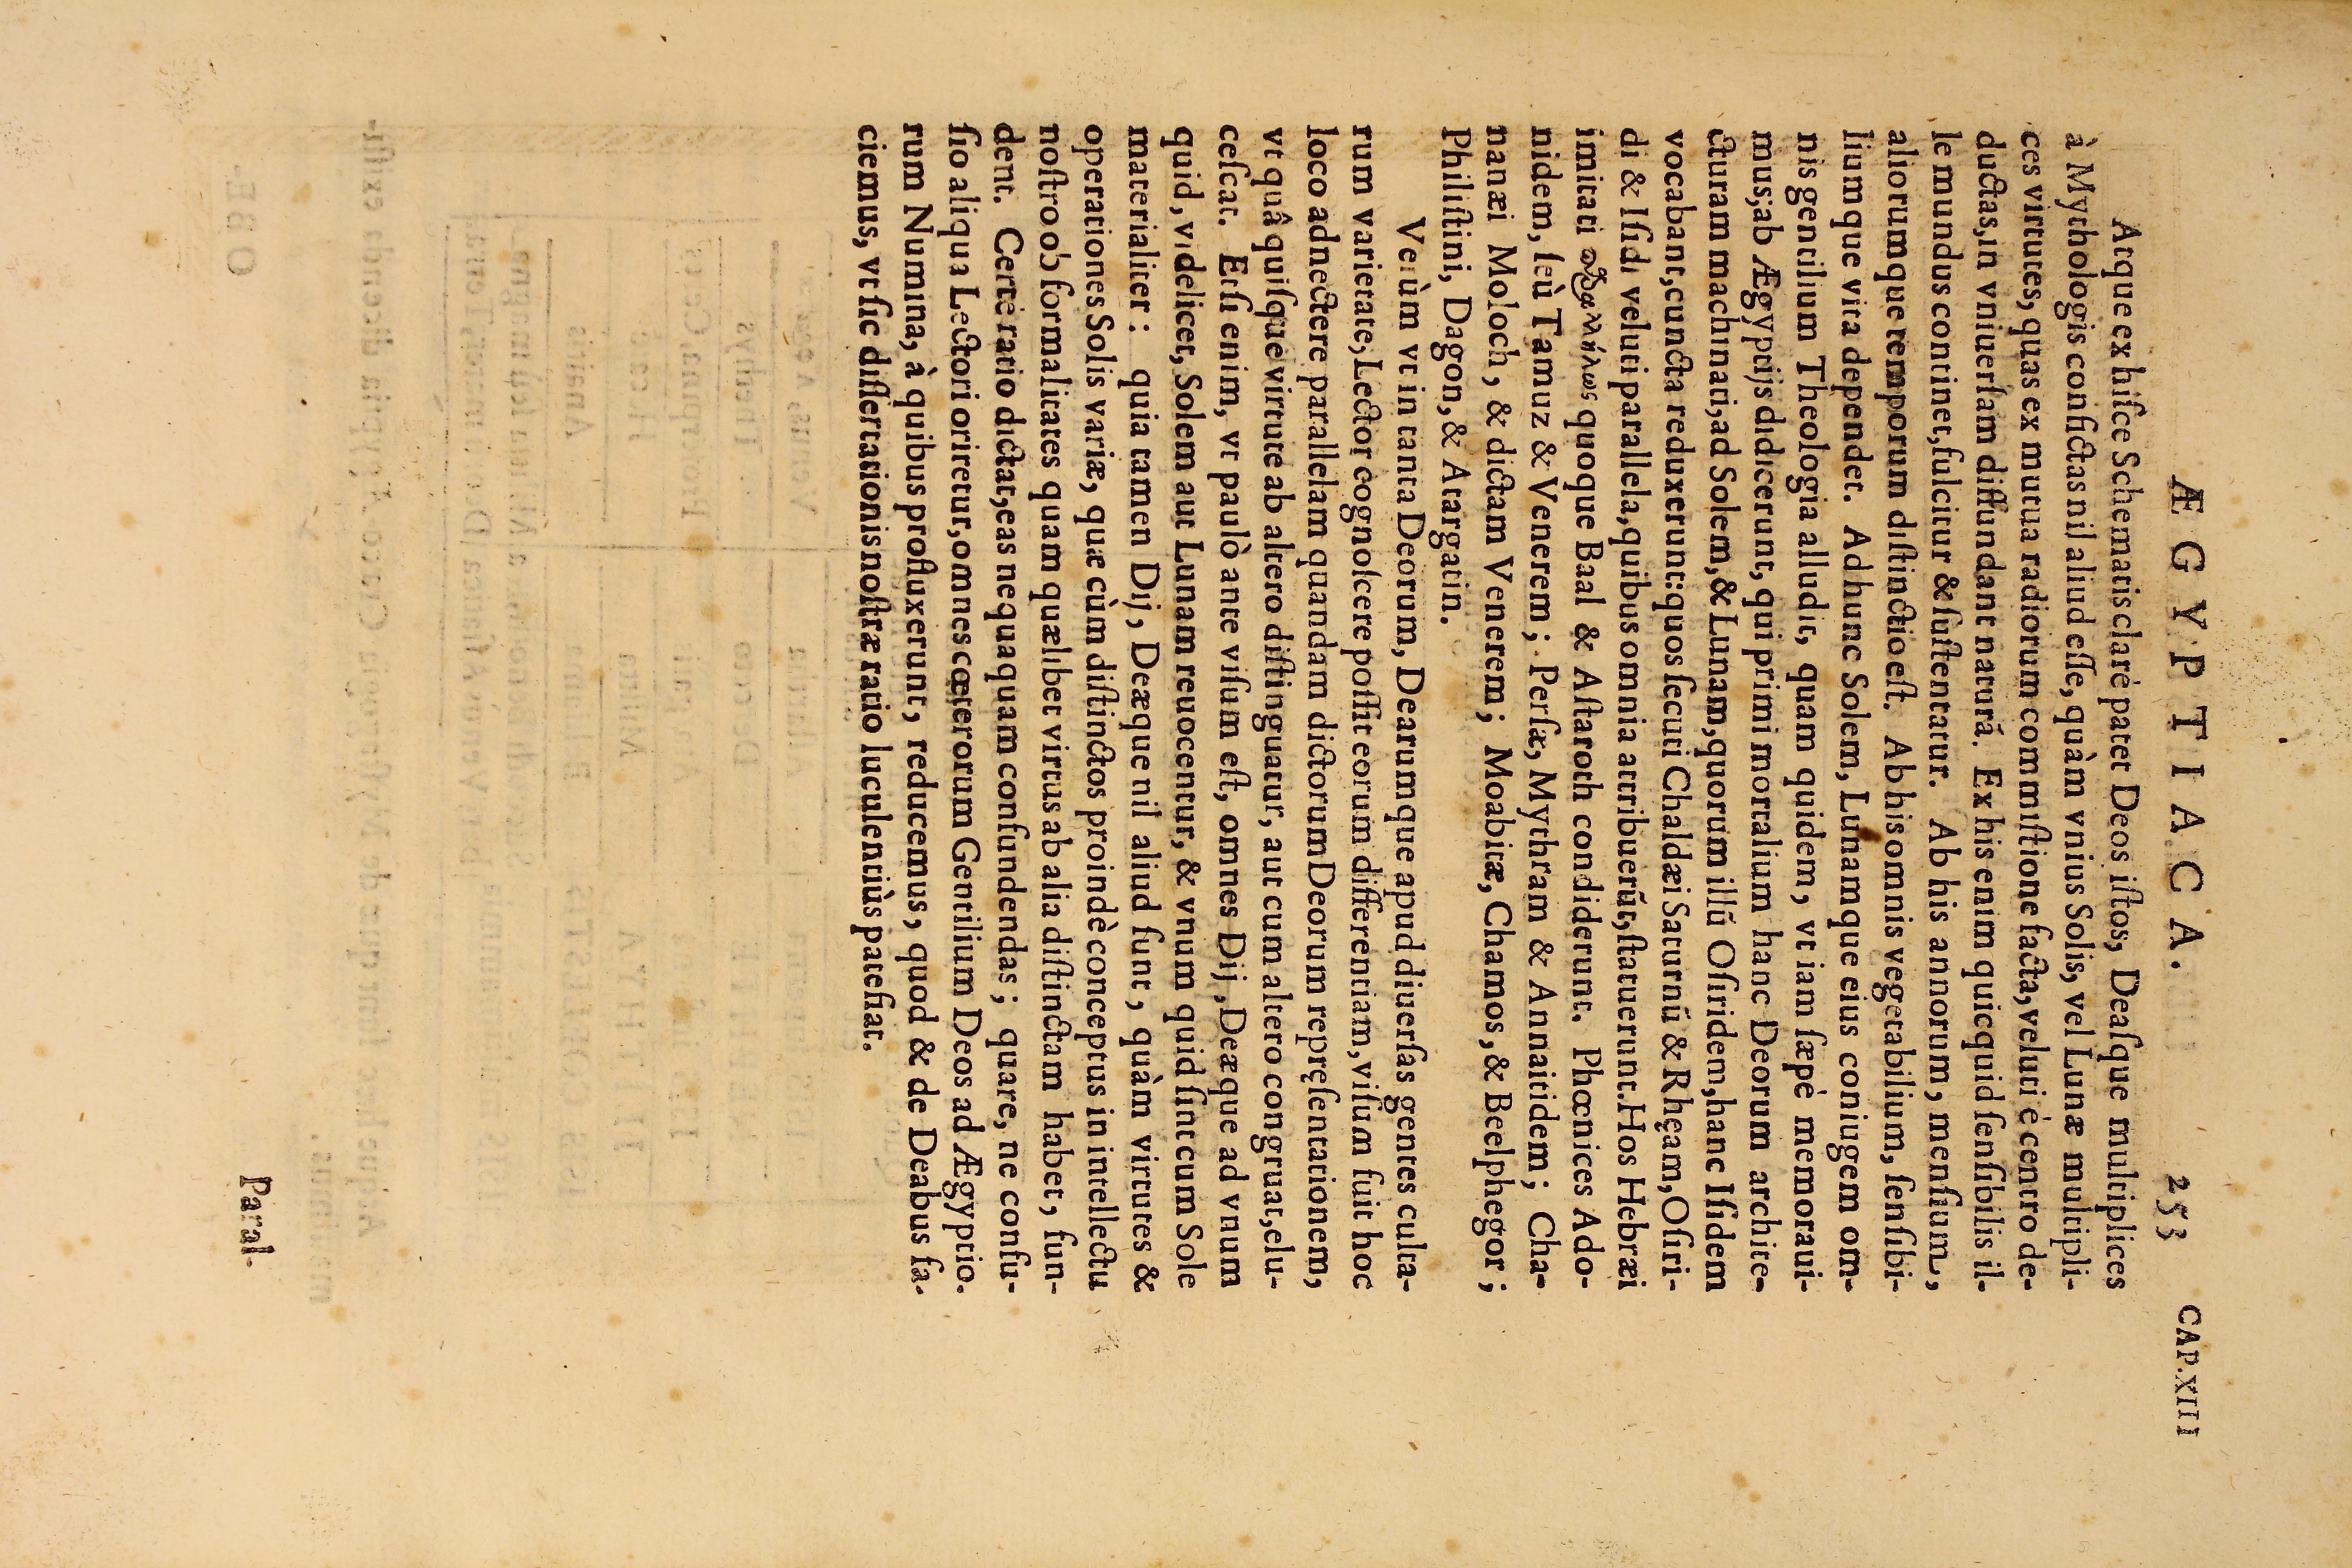 ÆGYPTIACA. 253 CAP.XIII
Atque ex hiſce Schematis clarè patet Deos iſtos, Deaſque multiplices
à Mythologis confictas nil aliud eſſe, quàm vnius Solis, vel Lunæ multipli-
ces virtutes, quas ex mutua radiorum commiſtione facta, veluti è centro de-
ductas, in vniuerſam diffundant naturā. Ex his enim quicquid ſenſibilis il-
le mundus continet, fulcitur & ſuſtentatur. Ab his annorum, menſium,
aliorumque temporum diſtinctio eſt. Ab his omnis vegetabilium, ſenſibi-
liumque vita dependet. Ad hunc Solem, Lunamque eius coniugem om-
nis gentilium Theologia alludit, quam quidem, vt iam ſæpè memoraui-
mus; ab Ægyptijs didicerunt, qui primi mortalium hanc Deorum archite-
cturam machinati, ad Solem, & Lunam, quorum illū Oſiridem, hanc Iſidem
vocabant, cuncta reduxerunt: quos ſecuti Chaldæi Saturnū & Rhęam, Oſiri-
di & Iſidi veluti parallela, quibus omnia attribuerūt, ſtatuerunt. Hos Hebræi
imitati quoque Baal & Aſtaroth condiderunt. Phœnices Ado-
nidem, ſeù Tamuz & Venerem; Perſæ, Mythram & Annaitidem; Cha-
nanæi Moloch, & dictam Venerem; Moabitæ, Chamos, & Beelphegor;
Philiſtini, Dagon, & Atargatin.
Verùm vt in tanta Deorum, Dearumque apud diuerſas gentes culta-
rum varietate, Lector cognoſcere poſſit eorum differentiam, viſum fuit hoc
loco adnectere parallelam quandam dictorum Deorum repręſentationem,
vt quâ quiſque virtute ab altero diſtinguatur, aut cum altero congruat, elu-
ceſcat. Etſi enim, vt paulò ante viſum eſt, omnes Dij, Deæque ad vnum
quid, videlicet, Solem aut Lunam reuocentur, & vnum quid ſint cum Sole
materialiter: quia tamen Dij, Deæque nil aliud ſunt, quàm virtutes &
operationes Solis variæ, quæ cùm diſtinctos proindè conceptus in intellectu
noſtro ob formalitates quam quælibet virtus ab alia diſtinctam habet, fun-
dent. Certè ratio dictat, eas nequaquam confundendas; quare, ne confu-
ſio aliqua Lectori oriretur, omnes cœterorum Gentilium Deos ad Ægyptio-
rum Numina, à quibus profluxerunt, reducemus, quod & de Deabus fa-
ciemus, vt ſic diſſertationis noſtræ ratio luculentiùs patefiat.
Paral-